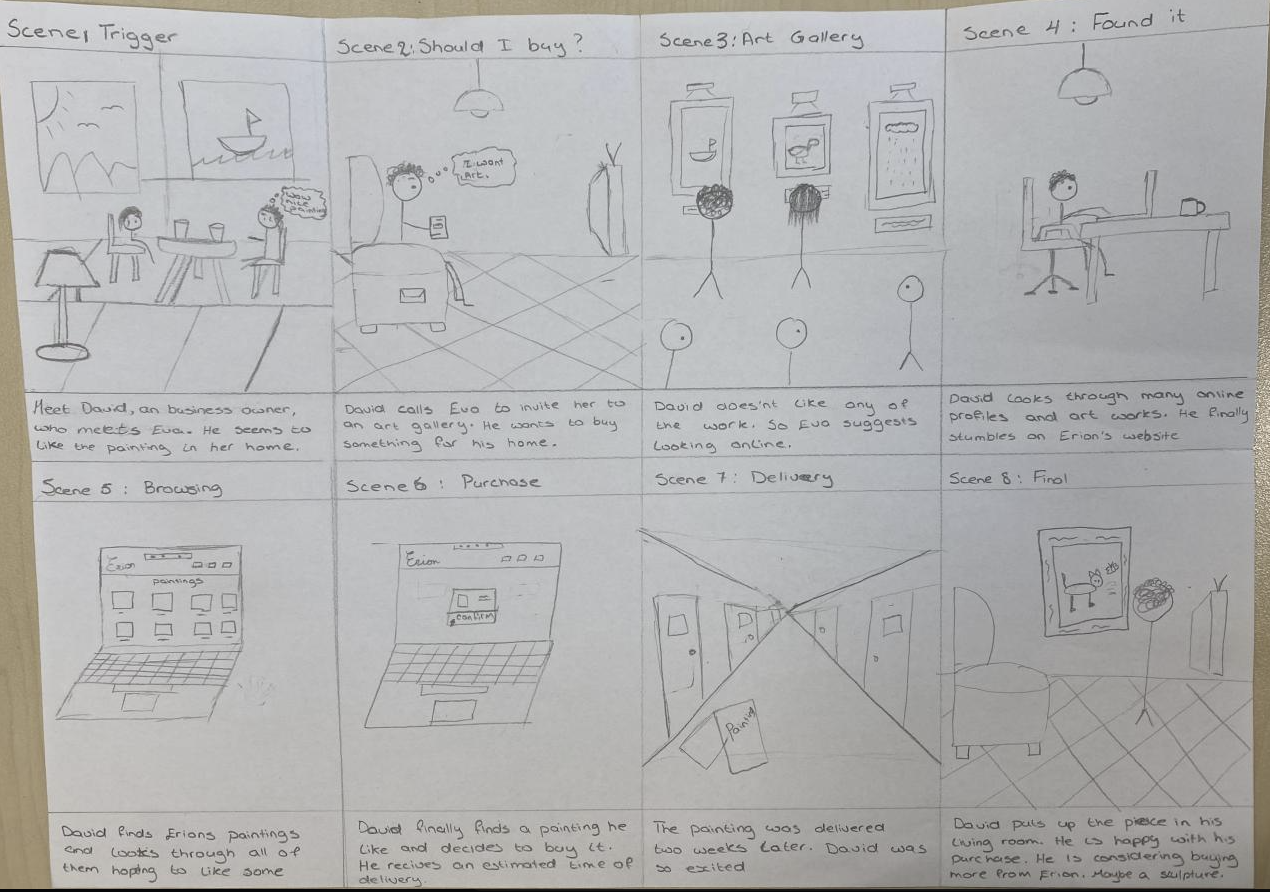 Scene, Trigger
wow
nice
painting
Meet David, an business owner,
who meets Eva. He seems to
like the painting in her home.
Scene 2: Should I buy?
I want
Art.
David calls Eva to invite her to
an art gallery. He wants to buy
something for his home.
Scene 3: Art Gallery
David does'nt like any of
the work. So Eva suggests
looking online.
Scene 4: Found it
David looks through many online
profiles and art works. He finally
stumbles on Erion's website
Scene 5: Browsing
Erion
paintings
David finds Erions paintings
and looks through all of
them hoping to like some
Scene 6: Purchase
Erion
confirm
David finally finds a painting he
like and decides to buy it.
He recives an estimated time of
delivery.
Scene 7: Delivery
Painting
The painting was delivered
two weeks later. David was
so exited
Scene 8: Final
David puts up the piece in his
living room. He is happy with his
purchase. He is considering buying
more from Erion. Maybe a sculpture.